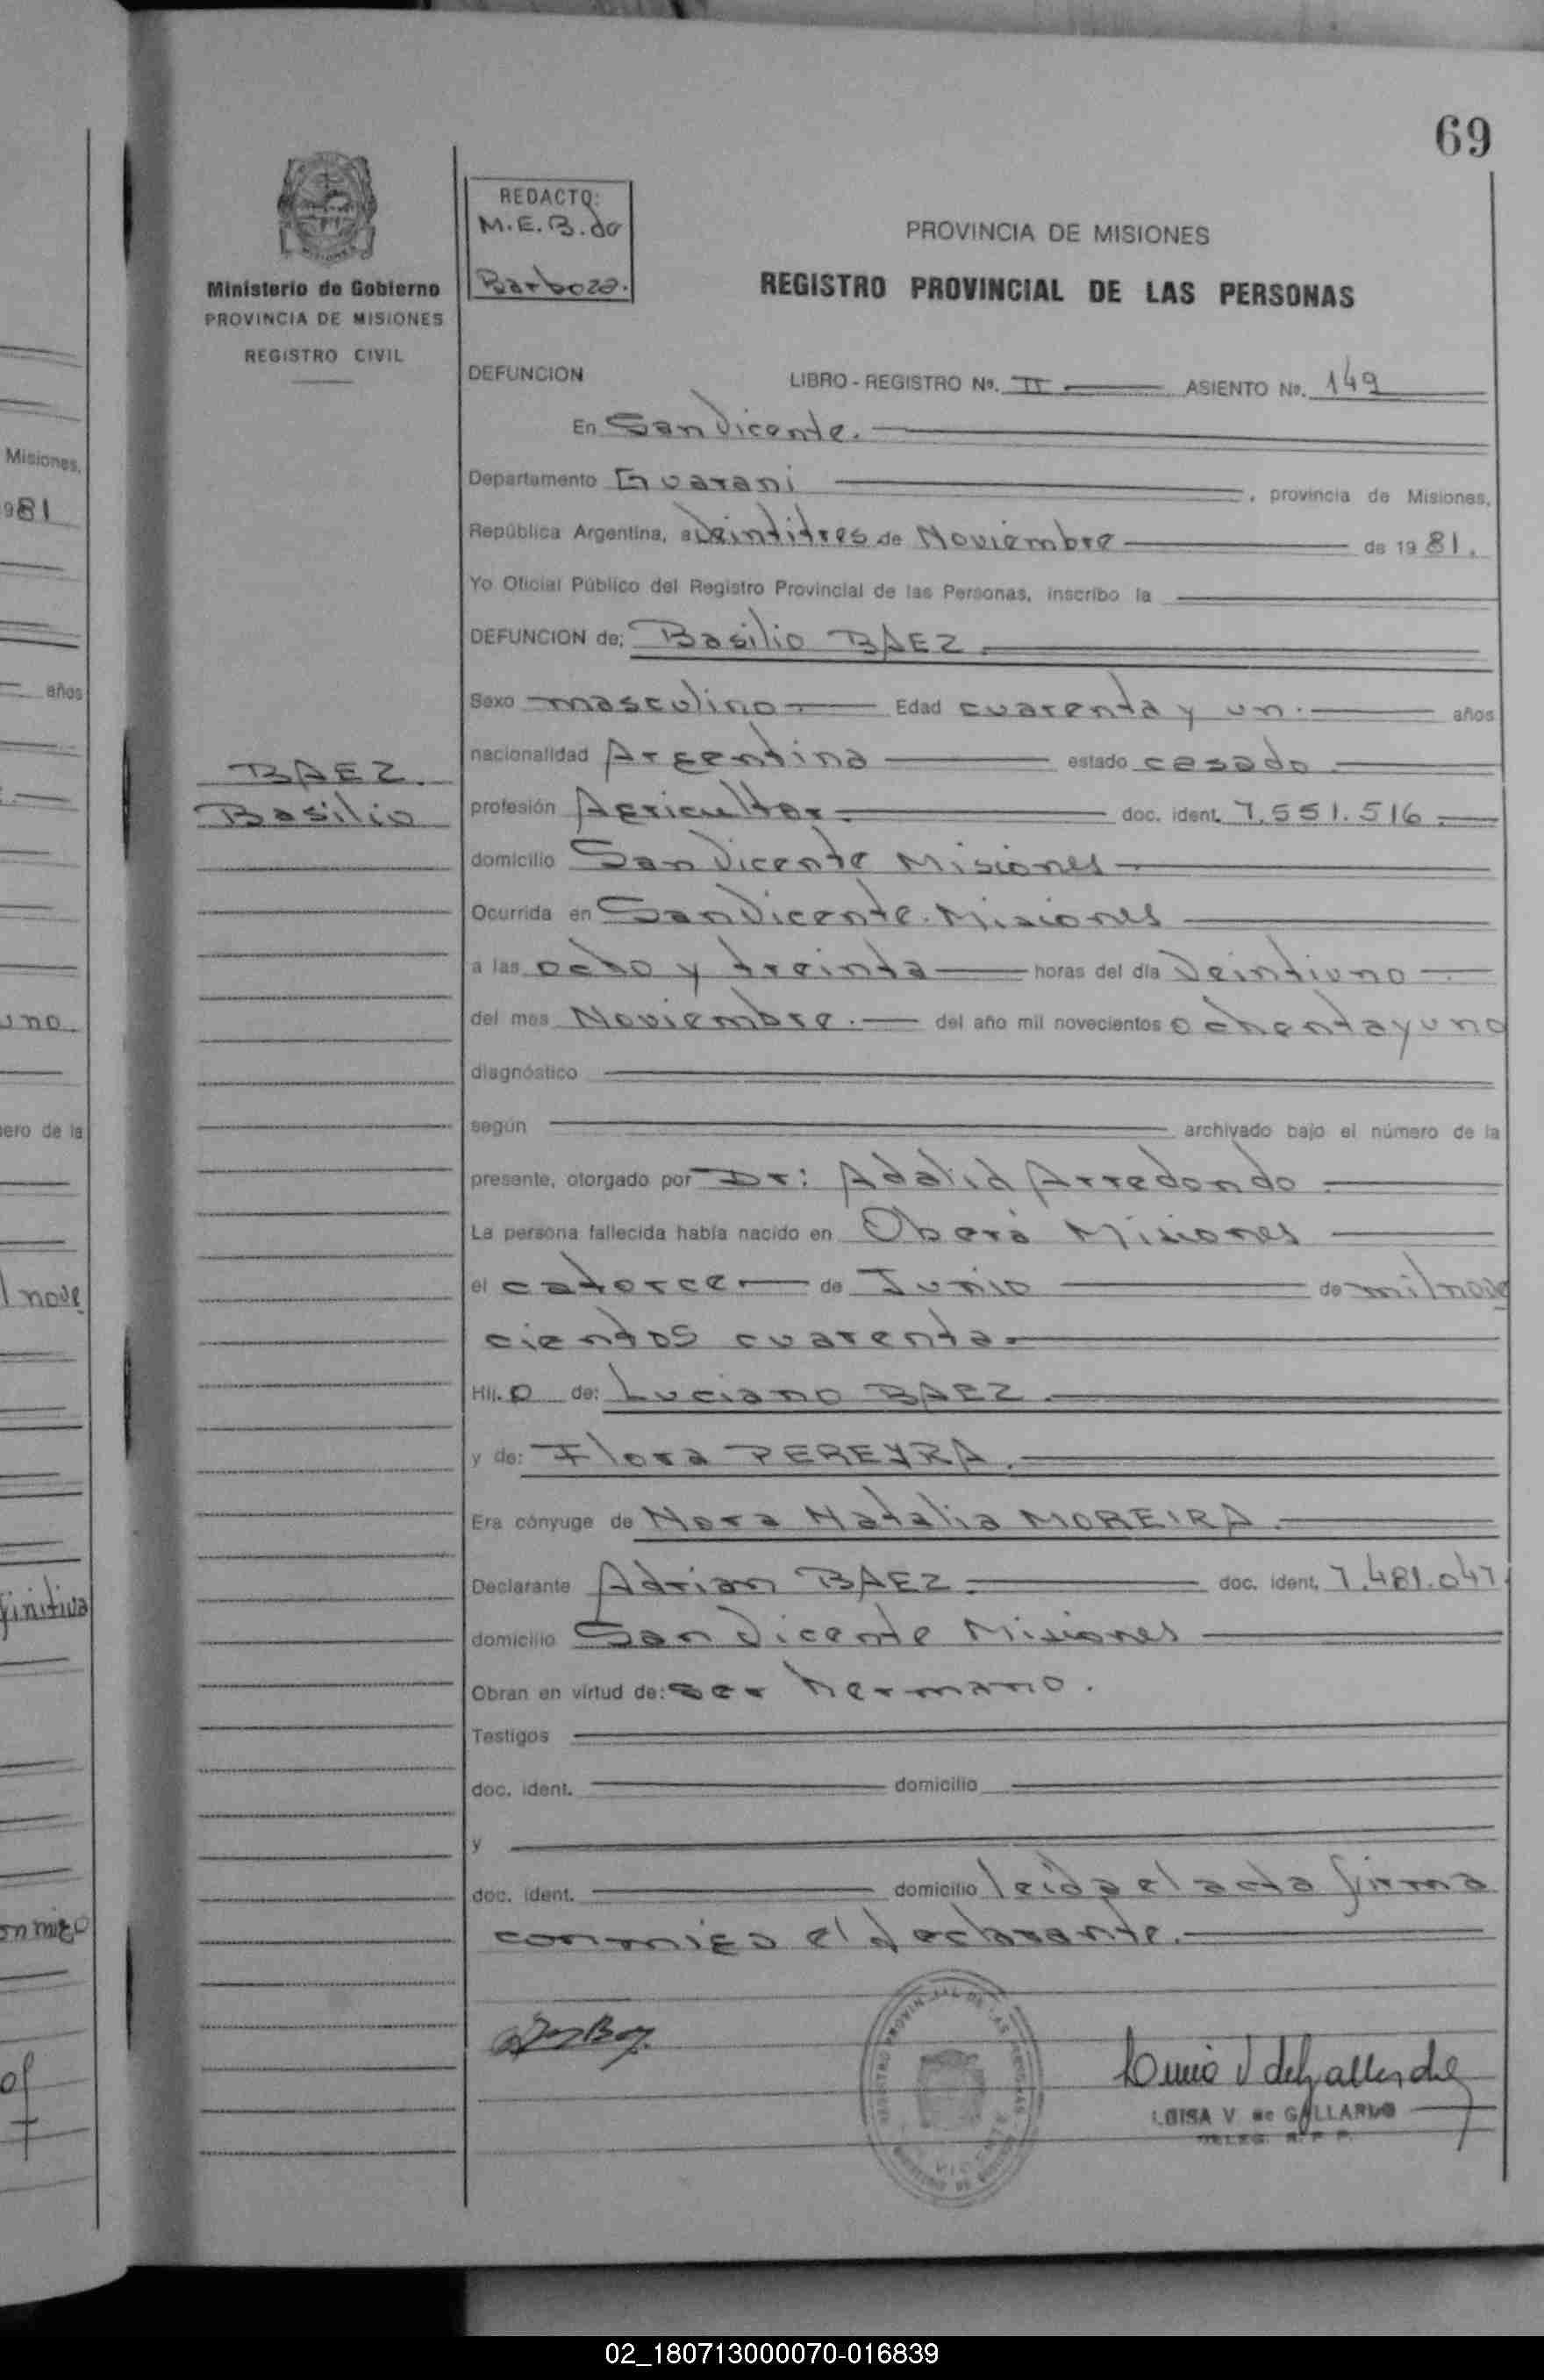 69
REDACTO:
M.E.B. de
Barboza.
PROVINCIA DE MISIONES
REGISTRO PROVINCIAL DE LAS PERSONAS
Ministerio de Gobierno
PROVINCIA DE MISIONES
REGISTRO CIVIL
DEFUNCION LIBRO - REGISTRO Nº. II ASIENTO Nº. 149
En San Vicente.
Departamento Guarani , provincia de Misiones,
República Argentina, a Veintitres de Noviembre de 1981.
Yo Oficial Público del Registro Provincial de las Personas, inscribo la
DEFUNCION de: Basilio BAEZ
Sexo masculino Edad cuarenta y un. años
nacionalidad Argentina estado casado
BAEZ.
Basilio
profesión Agricultor. doc. ident. 7.551.516
domicilio San Vicente Misiones
Ocurrida en San Vicente. Misiones
a las ocho y treinta horas del día Veintiuno
del mes Noviembre. del año mil novecientos ochenta y uno
diagnóstico
según archivado bajo el número de la
presente, otorgado por Dr: Adalid Arredondo
La persona fallecida había nacido en Oberá Misiones
el catorce de Junio de mil nove
cientos cuarenta.
Hij.o de: Luciano BAEZ
y de: Flora PEREYRA.
Era cónyuge de Nora Natalia MOREIRA.
Declarante Adrian BAEZ. doc. ident. 7.481.047
domicilio San Vicente Misiones
Obran en virtud de: ser hermano.
Testigos
doc. ident. domicilio
y
doc. ident. domicilio leida el acta firma
conmigo el declarante.
LUISA V de GALLARDO
DELEG. R. P. P.
Misiones,
1981
años
uno.
número de la
l nove
finitiva
onmigo
02_180713000070-016839